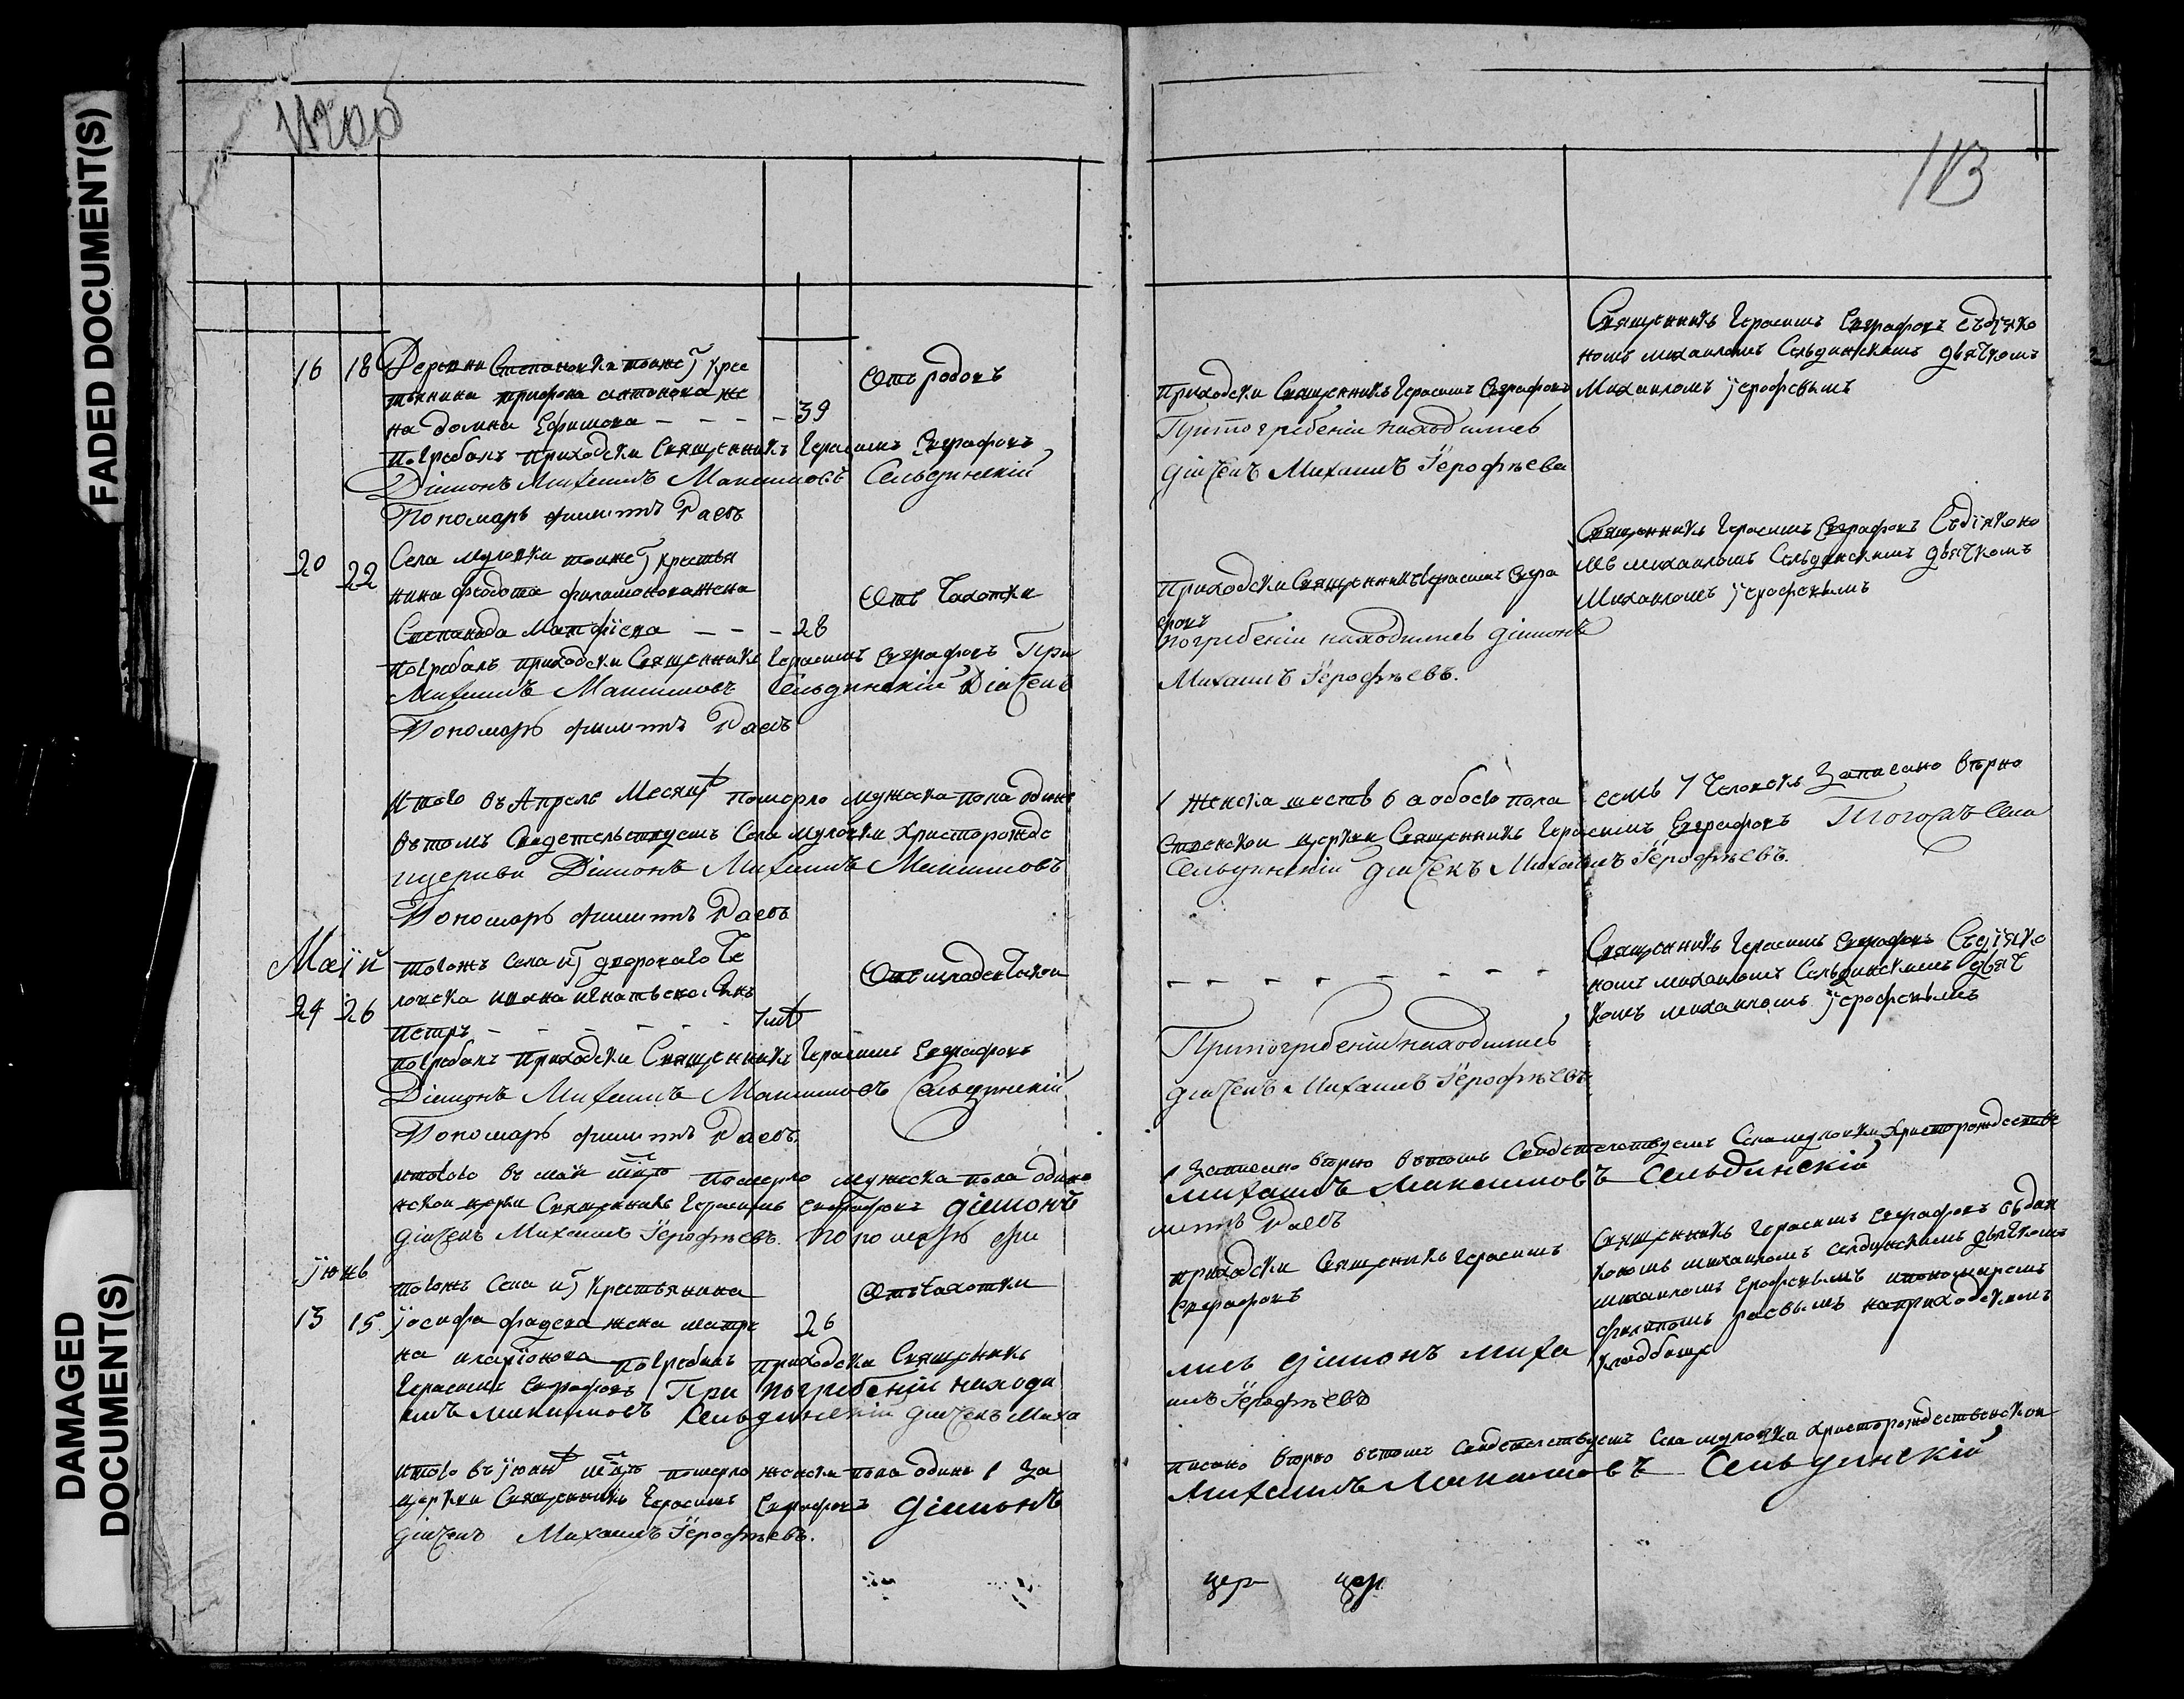 FADED DOCUMENT(S)
DAMAGED
DOCUMENT(S)
113
16 18 Деревни Степановки тоже г крес
тьянина трифона антонова же
на домна Ефимова - - - - 39
отъ родовъ
погребалъ приходски Священникъ Герасимъ Евграфовъ
Діаконъ Михаилъ Максимовъ Сельдинскій
Пономарь филиппъ Раевъ
приходски Священникъ Герасимъ Евграфовъ
При погребеніи находились
діячекъ Михаилъ Іерофѣевъ
Священникъ Герасимъ Евграфовъ съдіяко
номъ михаиломъ Сельдинскимъ дьячкомъ
Михаиломъ іерофевымъ
20 22 Села муловки тоже г крестья
нина федота филимонова жена
Степанида Матфіева - - - 28
отъ Чахотки
погребалъ приходски Священникъ Герасимъ Евграфовъ При
Михаилъ Максимовъ Сельдинскій Діячекъ
Пономарь филиппъ Раевъ
приходски Священникъ Герасимъ Евгра
фовъ
погребеніи находились діаконъ
Михаилъ Іерофѣевъ.
Священникъ Герасимъ Евграфовъ Съдіяконо
мъ михаиломъ Сельдинскимъ дьячкомъ
Михаиломъ іерофевымъ
Итого въ Апреле Месяцѣ померло мужеска пола одинъ
1 женска шесть 6 а обоего пола семь 7 Человекъ Записано вѣрно
втомъ Свидетельствуемъ Села муловки христорожде
ственской церкви Священникъ Герасимъ Евграфовъ Тогожъ Села
церкви Діаконъ Михаилъ Максимовъ
Сельдинскій діячекъ Михаилъ Іерофѣевъ.
Пономарь филиппъ Раевъ
Маій
24 26
тогожъ Села г двороваго Че
ловека ивана игнатьева Сынъ
петръ - - - - - 1
отъ младенческой
погребалъ приходски Священникъ Герасимъ Евграфовъ
Діаконъ Михаилъ Максимовъ Сельдинскій
Пономарь филиппъ Раевъ.
При погребеніи находились
діячекъ Михаилъ Іерофѣевъ
Священникъ Герасимъ Евграфовъ Съдіяко
номъ михаиломъ Сельдинскимъ дьяч
комъ михаиломъ іерофевымъ
итого въ маіи мцѣ померло мужеска пола одинъ
1 Записано вѣрно втомъ Свидетельствуемъ Села муловки христорождестве
нской церкви Священникъ Герасимъ Евграфовъ діаконъ
михаилъ максимовъ Сельдинскій
діячекъ Михаилъ Іерофѣевъ. Пономарь фи
липпъ Раевъ
іюнь
13 15
тогожъ Села г крестьянина
іосифа фадеева жена матре
на иларіонова 26
отъ Чахотки
погребалъ приходски Священникъ
Герасимъ Евграфовъ При погребеніи находи
илъ максимовъ Сельдинскій діячекъ Миха
приходски Священникъ Герасимъ
Евграфовъ
лись діаконъ миха
илъ Іерофѣевъ
Священникъ Герасимъ Евграфовъ съдія
кономъ михаиломъ селдинскимъ дьячкомъ
михаиломъ Ерофевымъ ипономаремъ
филипомъ раевымъ наприходскомъ
кладбище
итого въ іюнѣ мцѣ померло женска пола одна 1 За
писано вѣрно втомъ Свидетельствуемъ Села муловки христорождественской
церкви Священникъ Герасимъ Евграфовъ діаконъ
михаилъ максимовъ Сельдинскій
діячекъ Михаилъ Іерофѣевъ.
цер цер